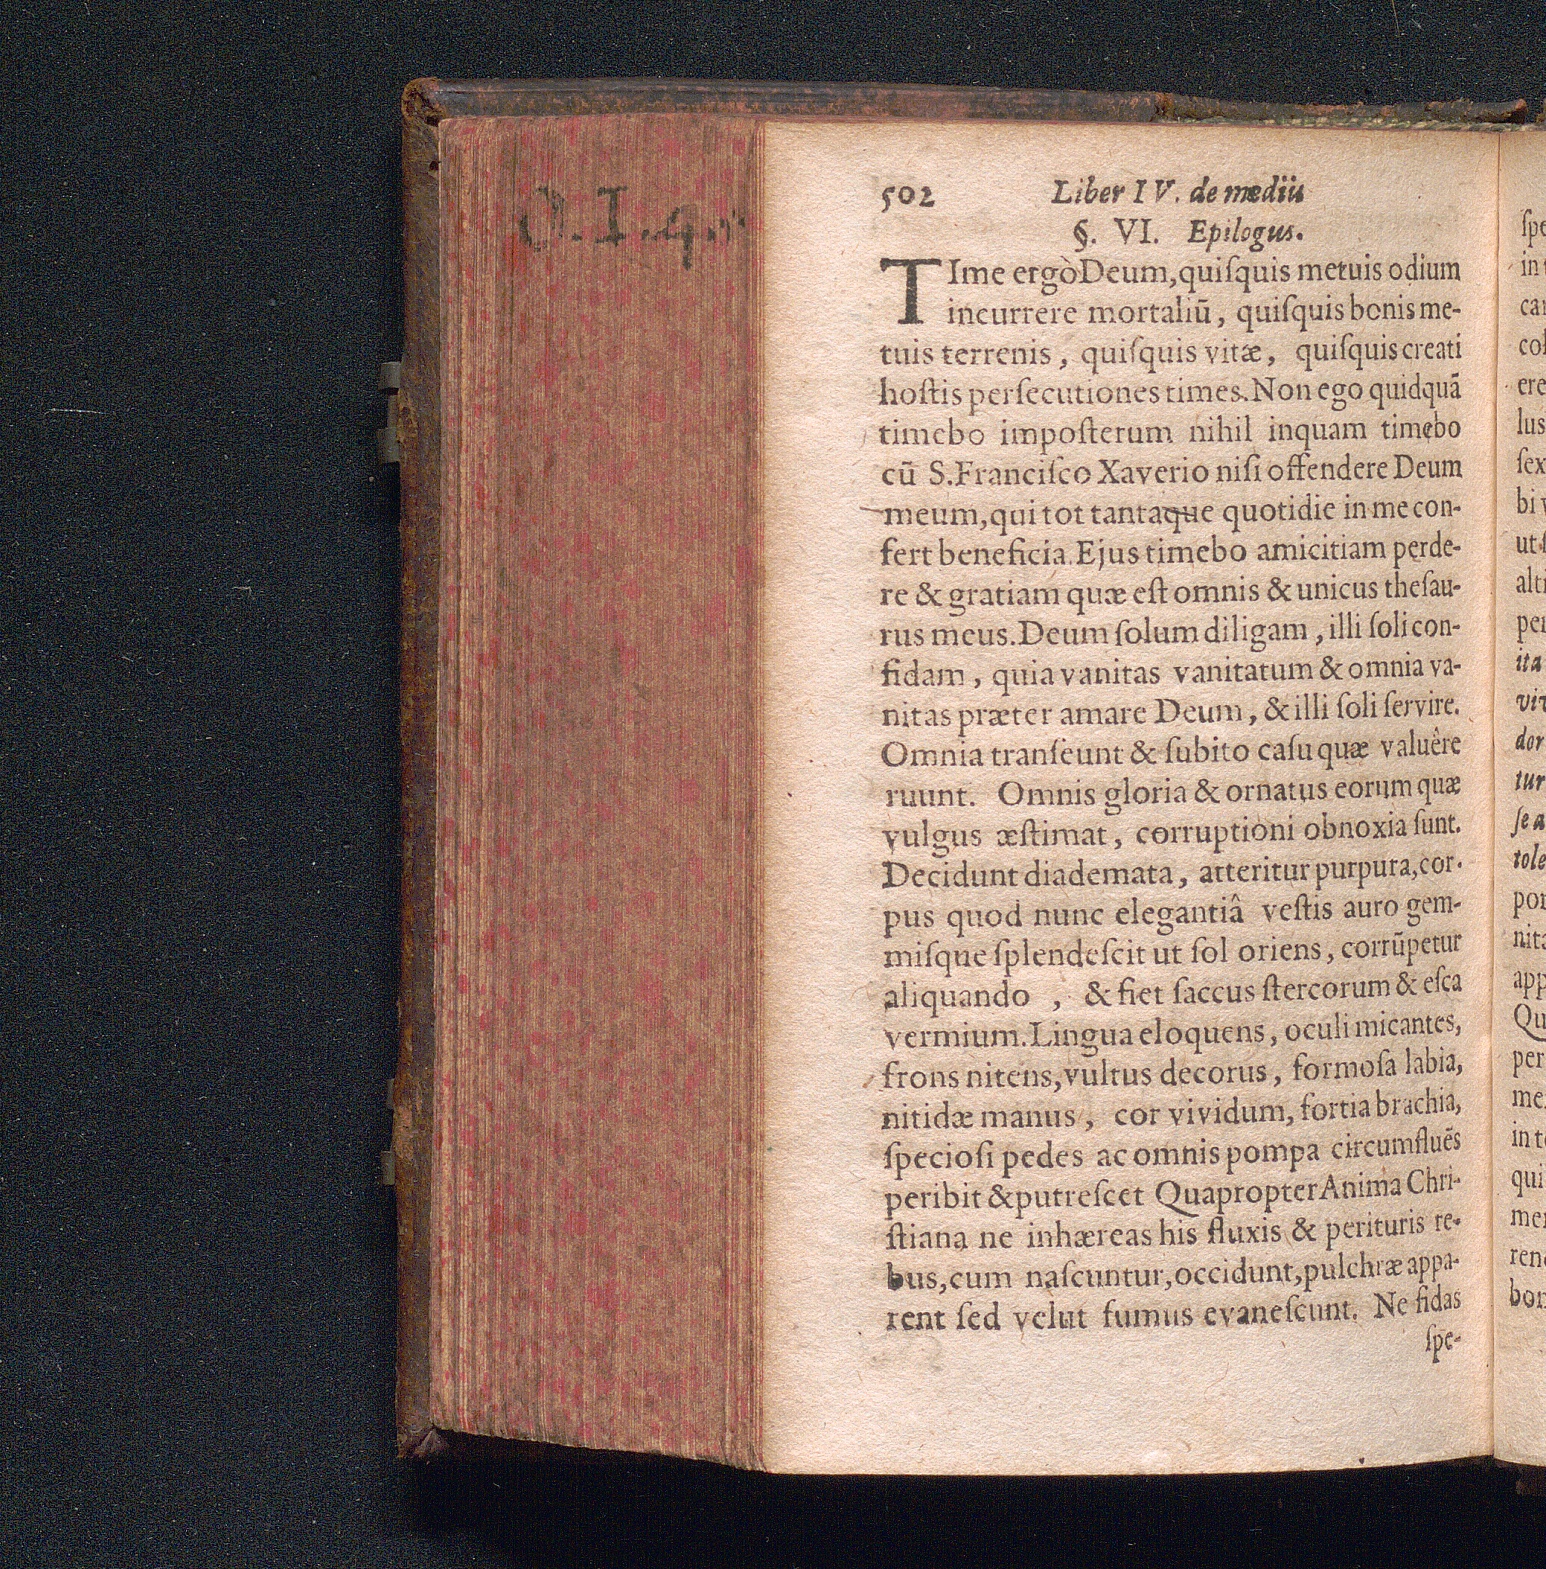 502 Liber IV. de mediis
§. VI. Epilogus.
TIme ergò Deum, quiſquis metuis odium
incurrere mortaliū, quiſquis bonis me-
tuis terrenis, quiſquis vitæ, quiſquis creati
hoſtis perſecutiones times. Non ego quidquā
timebo impoſterum nihil inquam timebo
cū S. Franciſco Xaverio niſi offendere Deum
meum, qui tot tantaque quotidie in me con-
fert beneficia. Ejus timebo amicitiam perde-
re & gratiam quæ eſt omnis & unicus theſau-
rus meus. Deum ſolum diligam, illi ſoli con-
fidam, quia vanitas vanitatum & omnia va-
nitas præter amare Deum, & illi ſoli ſervire.
Omnia tranſeunt & ſubito caſu quæ valuêre
ruunt. Omnis gloria & ornatus eorum quæ
vulgus æſtimat, corruptioni obnoxia ſunt.
Decidunt diademata, atteritur purpura, cor-
pus quod nunc elegantiâ veſtis auro gem-
miſque ſplendeſcit ut ſol oriens, corrūpetur
aliquando, & fiet ſaccus ſtercorum & eſca
vermium. Lingua eloquens, oculi micantes,
frons nitens, vultus decorus, formoſa labia,
nitidæ manus, cor vividum, fortia brachia,
ſpecioſi pedes ac omnis pompa circumfluēs
peribit & putreſcet Quapropter Anima Chri-
ſtiana ne inhæreas his fluxis & perituris re-
bus, cum naſcuntur, occidunt, pulchræ appa-
rent ſed velut fumus evaneſcunt. Ne fidas
ſpe-